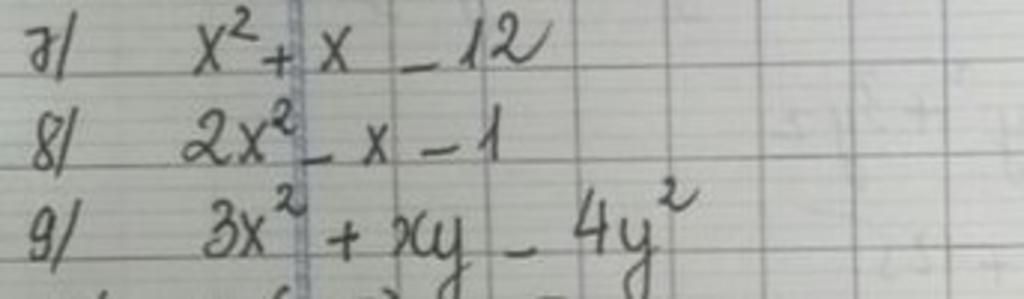 7/ x² + x - 12
8/ 2x² - x - 1
9/ 3x² + xy - 4y²